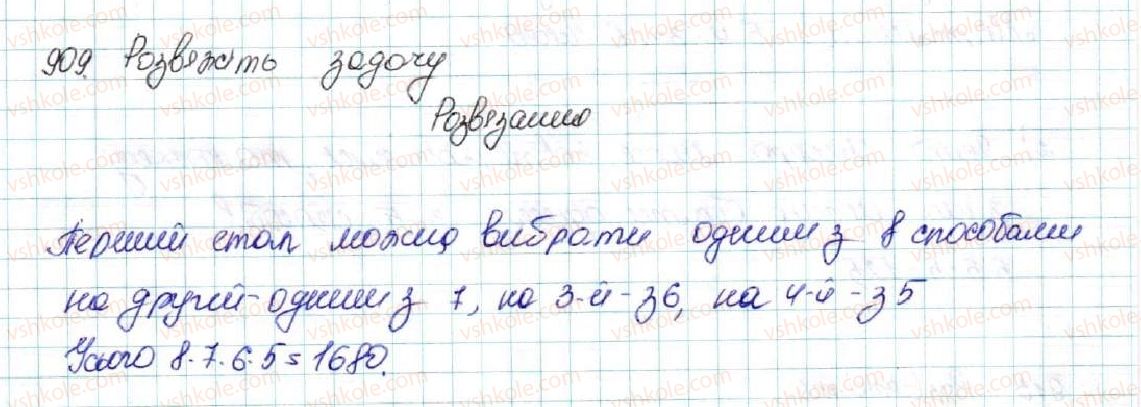 909. Розвяжіть задачу
Розвязання
Перший етап можна вибрати одним з 8 способами
на другий - одним з 7, на 3-й - з 6, на 4-й - з 5
Усього 8·7·6·5=1680.